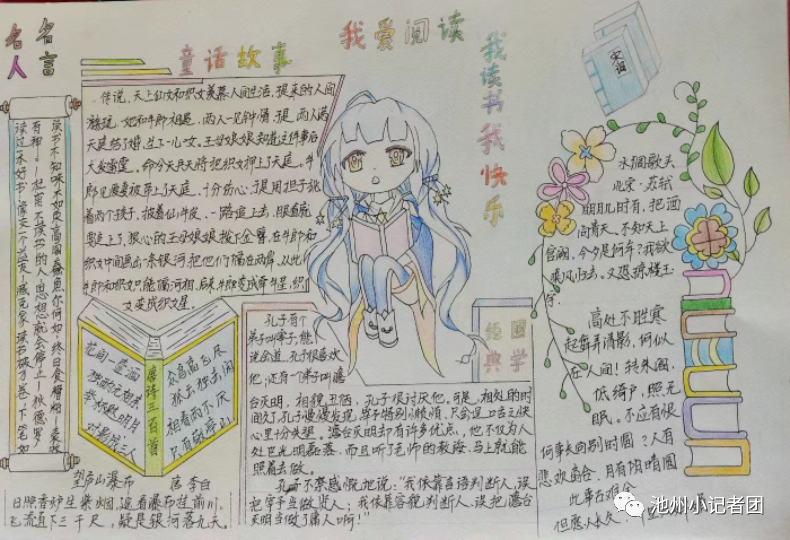 名人
名言
童话故事
我爱阅读
我读书我快乐
宋词
传说，天上仙女和织女羡慕人间生活，提来的人间
游玩，她和牛郎相遇，两人一见钟情，于是，两人满
天庭结了婚，生了一儿一女。王母娘娘知道这件事后
大发雷霆。命令天兵天将把织女押上了天庭。牛
郎见妻妻被带上了天庭，十分伤心，于是用担子挑
着两个孩子，披着仙牛皮，一路追上去，眼看就
要追上了，狠心的王母娘娘拔下金簪，在牛郎和
织女中间画出一条银河把他们隔在两岸，从此牛
郎和织女只能隔河相
后来，牛郎变成牵牛星，织
女变成织女星。
读书不知味，不如束高阁；蠹鱼尔何如，终日食糟粕——袁枚
有神——杜甫 不读书的人，思想就会停止——狄德罗
读过一本好书，像交一个益友——臧克家 读书破万卷，下笔如
花间一壶酒
独酌无相亲
举杯邀明月
对影成三人
唐诗三百首
众鸟高飞尽
孤云独去闲
相看两不厌
只有敬亭山
望庐山瀑布
唐 李白
日照香炉生紫烟，遥看瀑布挂前川。
飞流直下三千尺，疑是银河落九天。
国学
经典
孔子有个
弟子叫宰予，能
说会道，孔子很喜欢
他；还有一个弟子叫澹
台灭明，相貌丑陋，孔子很讨厌他。可是，相处的时
间久了，孔子慢慢发现，宰予特别懒惰，只会逞口舌之快
心里十分失望。澹台灭明却有许多优点，他不仅为人
处世光明磊落，而且听了老师的教诲，马上就能
照着去做。
孔子不禁感慨地说：“我依靠言语判断人，误
把宰予当做贤人；我依靠容貌判断人，误把澹台
灭明当做了庸人啊！”
水调歌头
北宋·苏轼
明月几时有，把酒
问青天。不知天上
宫阙，今夕是何年？我欲
乘风归去。又恐琼楼玉
宇。
高处不胜寒
起舞弄清影，何似
在人间！转朱阁，
低绮户，照无
眠。不应有恨
何事长向别时圆？人有
悲欢离合，月有阴晴圆
此事古难全
但愿人长久，
池州小记者团